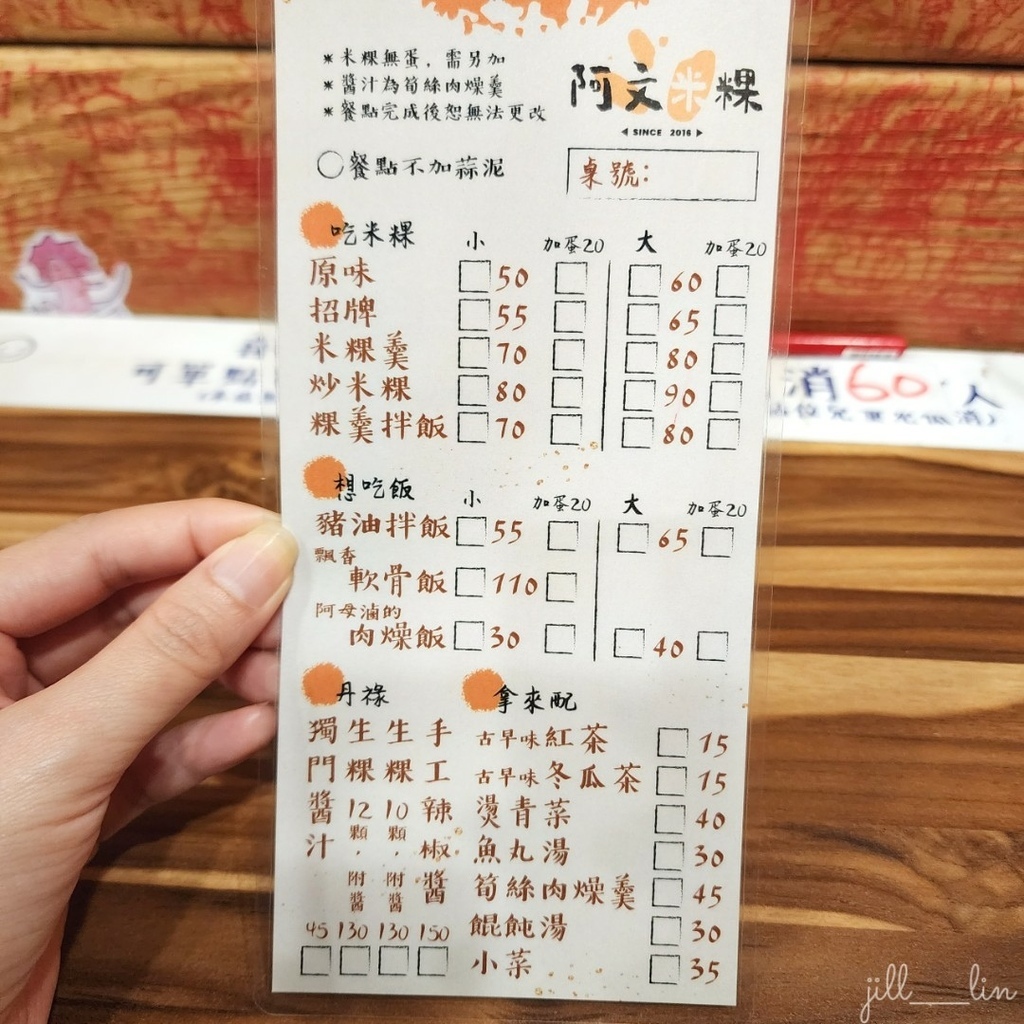 *米粿無蛋，需另加
*醬汁為筍絲肉燥羹
*餐點完成後恕無法更改
阿文米粿
◀ SINCE 2016 ▶
○餐點不加蒜泥
桌號：
吃米粿 小 加蛋20 大 加蛋20
原味 □50 □ □60 □
招牌 □55 □ □65 □
米粿羹 □70 □ □80 □
炒米粿 □80 □ □90 □
粿羹拌飯 □70 □ □80 □
想吃飯 小 加蛋20 大 加蛋20
豬油拌飯 □55 □ □65 □
飄香
軟骨飯 □110 □
阿母滷的
肉燥飯 □30 □ □40 □
丹祿
獨門醬汁 45 □
生粿12顆，附醬 130 □
生粿10顆，附醬 130 □
手工辣椒醬 150 □
拿來配
古早味紅茶 □15
古早味冬瓜茶 □15
燙青菜 □40
魚丸湯 □30
筍絲肉燥羹 □45
餛飩湯 □30
小菜 □35
消60/人
jill___lin